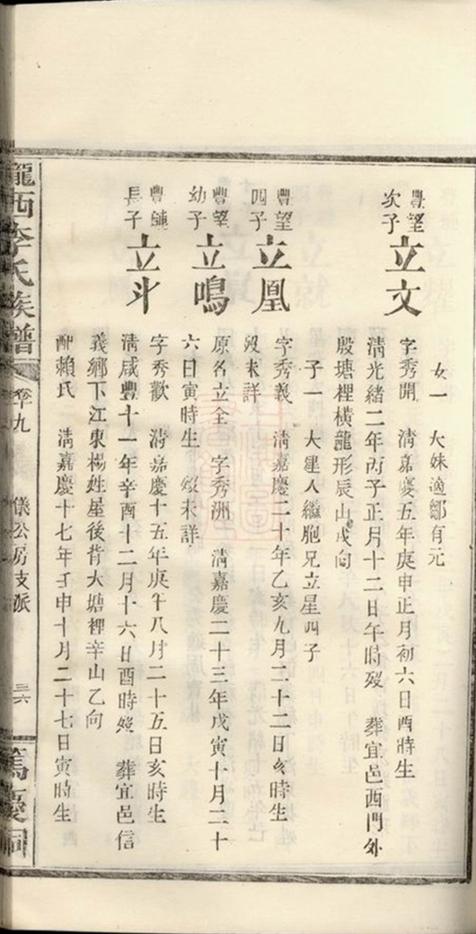 女一 大妹適鄒有元
豐望次子 立文 字秀開 清嘉慶五年庚申正月初六日酉時生
清光緒二年丙子正月十二日午時歿 葬宜邑西門外
殷塘裡橫龍形辰山戌向
子一 大星入繼胞兄立星四子
豐望四子 立凰 字秀義 清嘉慶二十年乙亥九月二十二日亥時生
歿未詳
豐望幼子 立鳴 原名立全 字秀洲 清嘉慶二十三年戊寅十月二十
六日寅時生 歿未詳
豐鍾長子 立斗 字秀歡 清嘉慶十五年庚午八月二十五日亥時生
清咸豐十一年辛酉十二月十六日酉時歿 葬宜邑信
義鄉下江東楊姓屋後背大塘裡辛山乙向
配賴氏 清嘉慶十七年壬申十月二十七日寅時生
隴西李氏族譜 卷九 儀公房支派 三六 篤慶祠